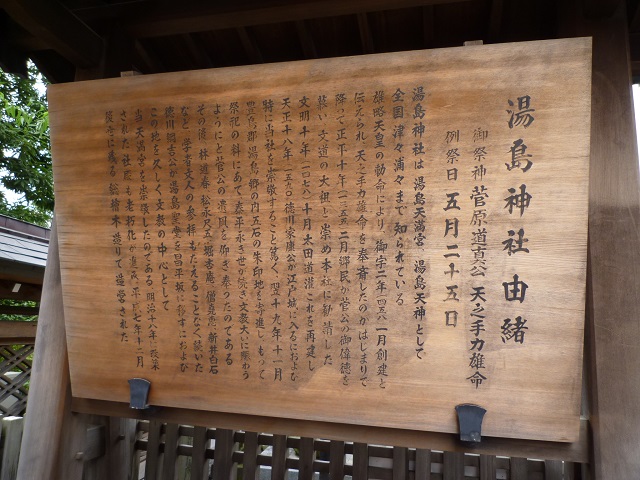 湯島神社 由緒
御祭神 菅原道真公 天之手力雄命
例祭日 五月二十五日
湯島神社は 湯島天満宮 湯島天神として
全国津々浦々まで知られている
雄略天皇の勅命により 御宇二年(四五八)一月創建と
伝えられ 天之手力雄命を奉斎したのがはじまりで
降って正平十年(一三五五)二月 郷民が菅公の御偉徳を
慕い 文道の大祖と崇め本社に勧請した
文明十年(一四七八)十月 太田道灌これを再建し
天正十八年(一五九〇)徳川家康公が江戸城に入るにおよび
特に当社を崇敬すること篤く 翌十九年十一月
豊島郡湯島郷の内五石の朱印地を寄進し もって
祭祀の料にあて 泰平永き世が続き 文教大いに賑わう
ようにと菅公の遺風を仰ぎ奉ったのである
その後 林道春 松永尺五 堀杏庵 僧堯恵 新井白石
など 学者文人の参拝もたえることなく続いた
徳川綱吉公が湯島聖堂を昌平坂に移すにおよび
この地を久しく文教の中心として
当天満宮を崇敬したのである 明治十八年に改築
された社殿も老朽化が進み 平成七年十二月
後世に残る総檜木造りで造営された